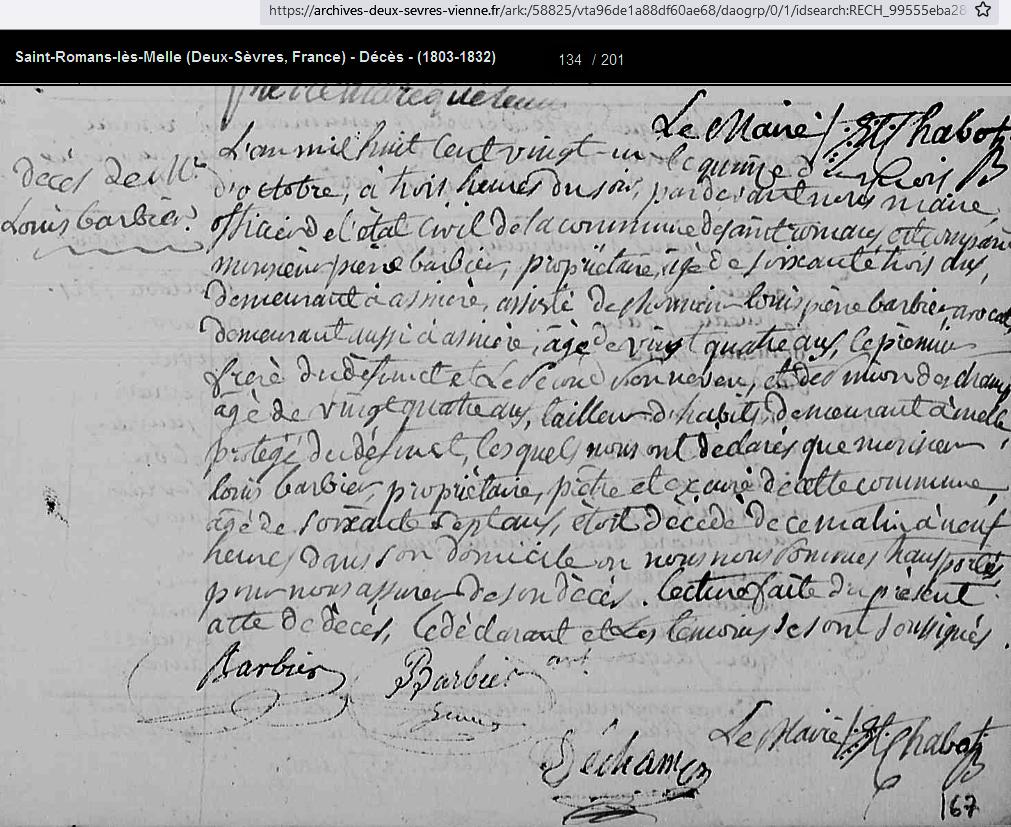 https://archives-deux-sevres-vienne.fr/ark:/58825/vta96de1a88df60ae68/daogrp/0/1/idsearch:RECH_99555eba28
Saint-Romans-lès-Melle (Deux-Sèvres, France) - Décès - (1803-1832)
134 / 201
Le Maire St Chabot
décès de Mr
Louis barbier.
L'an mil huit cent vingt un le quinze du mois
d'octobre, à trois heures du soir, pardevant nous maire,
officier de l'état civil de la commune de saint romans, est comparu
monsieur pierre barbier, propriètaire, agé de soixante trois ans,
demeurant à asnière, assisté de monsieur louis pierre barbier, avocat,
demeurant aussi à asnière, âgé de vingt quatre ans, le prémier
frère du défunct et Le Second son neveu, et de simon dechamp
âgé de vingt quatre ans, tailleur d'habits, demeurant à melle
protégé du défunct, lesquels nous ont déclarés que monsieur
louis barbier, propriètaire, prêtre et ex curé de cette commune,
âgé de soixante sept ans, étoit décédé de ce matin à neuf
heures dans son domicile ou nous nous sommes transportés
pour nous assurer de son décès. lecture faite du présent
acte de décès, le déclarant et Les témoins se sont soussignés.
Barbier
Barbier
avt
Jeune
Déchamp
Le Maire St Chabot
167